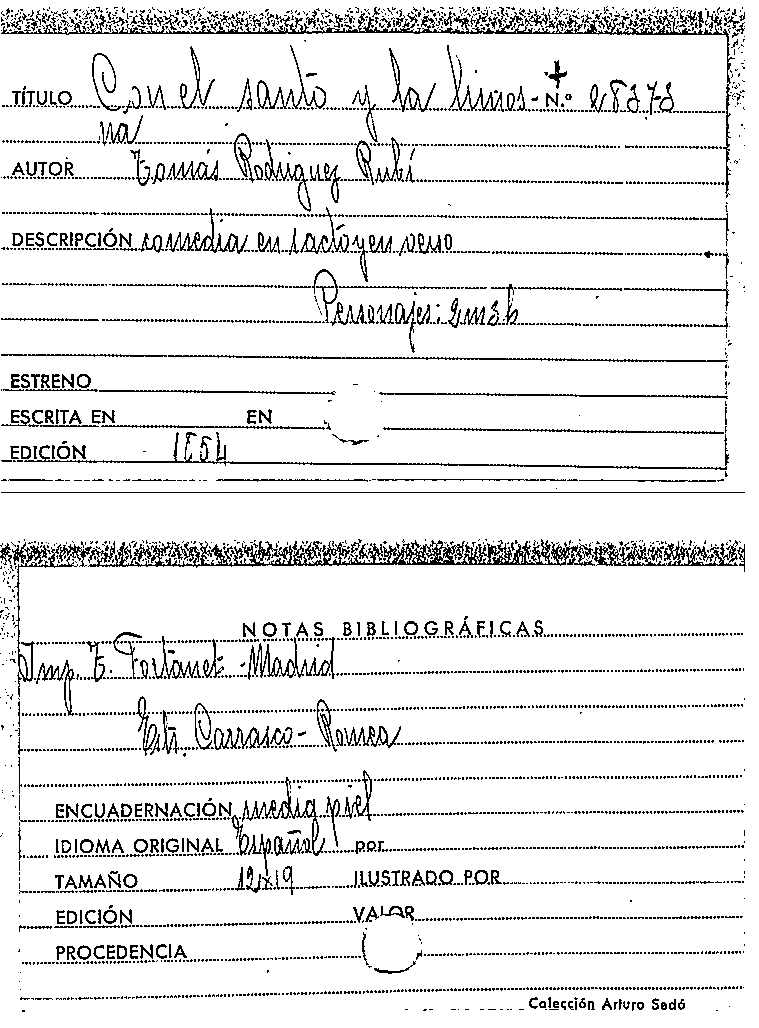 TÍTULO Con el santo y la limos- N.º 28373
na
AUTOR Tomás Rodriguez Rubí
DESCRIPCIÓN comedia en 1 acto y en verso
Personajes: 2m3h
ESTRENO
ESCRITA EN EN
EDICIÓN 1854
NOTAS BIBLIOGRÁFICAS
Imp. T. Fortanet - Madrid
Etr. Carrasco - Romea
ENCUADERNACIÓN media piel
IDIOMA ORIGINAL Español por
TAMAÑO 12x19 ILUSTRADO POR
EDICIÓN VALOR
PROCEDENCIA
Colección Arturo Sedó